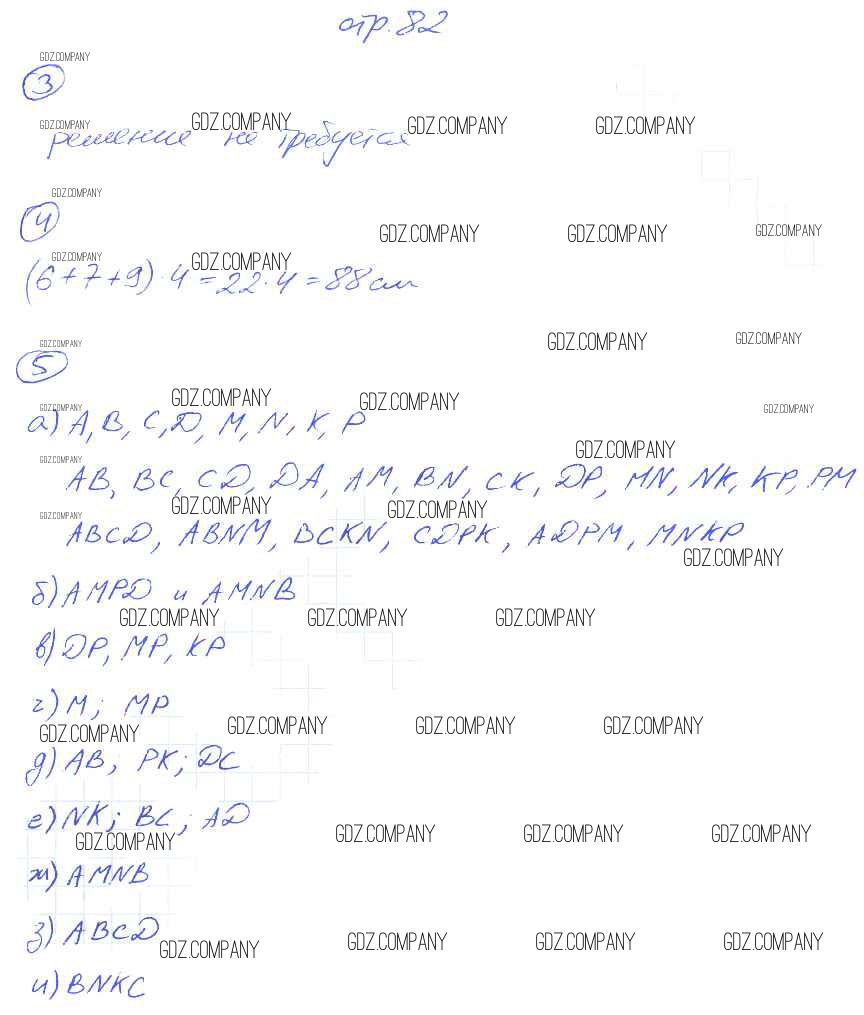 стр. 82
GDZ.COMPANY
3
GDZ.COMPANY GDZ.COMPANY GDZ.COMPANY GDZ.COMPANY
решение не требуется
GDZ.COMPANY
4
GDZ.COMPANY GDZ.COMPANY GDZ.COMPANY
GDZ.COMPANY GDZ.COMPANY
(6+7+9)·4=22·4=88см
GDZ.COMPANY GDZ.COMPANY GDZ.COMPANY
5
GDZ.COMPANY GDZ.COMPANY GDZ.COMPANY GDZ.COMPANY
а) A, B, C, D, M, N, K, P
GDZ.COMPANY GDZ.COMPANY
AB, BC, CD, DA, AM, BN, CK, DP, MN, NK, KP, PM
GDZ.COMPANY GDZ.COMPANY GDZ.COMPANY
ABCD, ABNM, BCKN, CDPK, ADPM, MNKP
GDZ.COMPANY
б) AMPD и AMNB
GDZ.COMPANY GDZ.COMPANY GDZ.COMPANY
в) DP, MP, KP
г) M; MP
GDZ.COMPANY GDZ.COMPANY GDZ.COMPANY GDZ.COMPANY
д) AB, PK; DC
е) NK; BC; AD
GDZ.COMPANY GDZ.COMPANY GDZ.COMPANY GDZ.COMPANY
ж) AMNB
з) ABCD
GDZ.COMPANY GDZ.COMPANY GDZ.COMPANY GDZ.COMPANY
и) BNKC